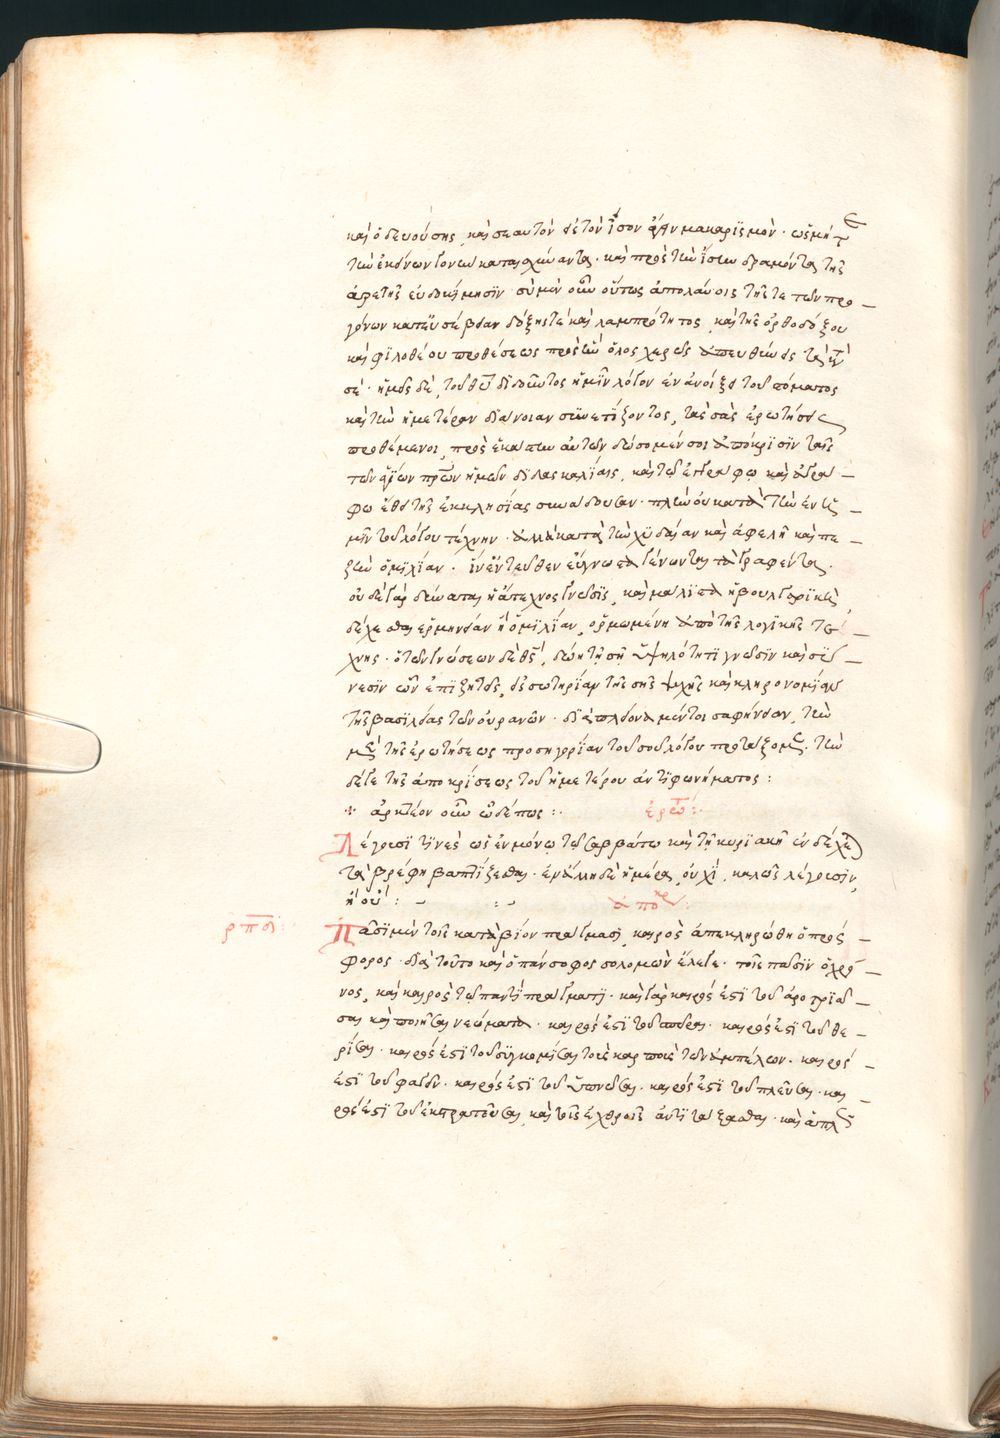 καὶ ὁδευούσης, καὶ σεαυτὸν δὲ τὸν ἴσον μακαρισμὸν. ὡς μήτε
τῶν ἐκείνων καταισχύναντα. καὶ πρὸς τὴν ἴσην δραμόντα τῆς
ἀρετῆς εὐδοκίμησϊν σὺ μὲν οὖν οὕτως ἀπολαύοις τῆς τε τῶν προ
γόνων κατ' εὐσέβειαν δόξης τὲ καὶ λαμπρότητος, καὶ τῆς ὀρθοδόξου
καὶ φϊλοθέου προθέσεως πρὸς ἣν ὅλοσχερῶς ἀπευθύνεις τὰ ἐν
σέ. ἡμεῖς δὲ, τοῦ θεοῦ διδοῦντος ἡμῖν λόγον ἐν ἀνοίξει τοῦ στόματος
καὶ τὴν ἡμετέραν διάνοιαν συνετίζοντος, τὰς σὰς ἐρωτήσεις
προθέμενοι, πρὸς ἑκάστην αὐτῶν δώσομέν σοι ἀπόκρισϊν ταῖς
τῶν ἁγίων πατέρων ἡμῶν δϊδασκαλΐαις, καὶ τῷ ἐγγράφῳ καὶ ἀγρά
φῳ ἔθει τῆς ἐκκλησίας συνάδουσαν. πλὴν οὐ κατὰ τὴν ἐν
μῖν τοῦ λόγου τέχνην. ἀλλὰ κατὰ τὴν χυδαίαν καὶ ἀφελῆ καὶ πε
ζὴν ὁμιλίαν. ἵν' ἐντεῦθεν εὔγνωστα γένωνται τὰ γραφέντα.
οὐδὲ γὰρ δύναται ἡ ἄτεχνος γνῶσϊς, καὶ μάλιστα ἡ βουλγαρικὴ
δέχεσθαι ἑρμηνείαν ἢ ὁμϊλΐαν, ὁρμωμένη ἀπὸ τῆς λογϊκῆς τέ
χνης. ὁ τῶν γνώσεων δὲ θεὸς, δῴη τῇ σῇ ὑψηλότητϊ γνῶσϊν καὶ σύ
νεσϊν ὧν ἐπϊζητεῖς, εἰς σωτηρΐαν τῆς σῆς ψυχῆς καὶ κληρονομΐαν
τῆς βασϊλείας τῶν οὐρανῶν. διὰ πλείονα μέντοι σαφήνειαν, τὴν
μὲν τῆς ἐρωτήσεως προσηγορΐαν τοῦ σοῦ λόγου προτάξομεν. τὴν
δέ γε τῆς ἀποκρίσεως τοῦ ἡμετέρου ἀντϊφωνήματος:
ἀρκτέον οὖν ὧδέ πως:. ἐρώ:.
Λέγουσϊ τϊνὲς ὡς ἐν μόνῳ τῷ σαββάτῳ καὶ τῇ κυρϊακῇ ἐνδέχεται
τὰ βρέφη βαπτΐζεσθαι. ἐν ἄλλῃ δὲ ἡμέρα, οὐχΐ, καλῶς λέγουσιν,
ἢ οὔ: ἀπόκρ:
ρ π α: Πᾶσϊ μὲν τοῖς κατὰ βίον πράγμασϊ, καιρὸς ἀπεκληρώθη ὁ πρόσ
φορος. διὰ τοῦτο καὶ ὁ πάνσοφος σολομὼν ἔλεγε. τοῖς πᾶσϊν ὁ χρό
νος, καὶ καιρὸς τῷ παντὶ πράγματϊ. καὶ γὰρ καιρὸς ἐστὶ τοῦ ἀροτριᾶ
σαι καὶ ποιῆσαι νεώματα. καιρός ἐστὶ τοῦ σπεῖραι. καιρὸς ἐστὶ τοῦ θε
ρίσαι. καιρὸς ἐστὶ τοῦ συγκομίσαι τοὺς καρποὺς τῶν ἀμπέλων. καιρός
ἐστὶ τοῦ φαγεῖν. καιρὸς ἐστὶ τοῦ ὑπνῶσαι. καιρὸς ἐστὶ τοῦ πλεῦσαι. και
ρὸς ἐστὶ τοῦ ἐκστρατεῦσαι, καὶ τοῖς ἐχθροῖς ἀντϊτάξασθαι. καὶ ἁπλῶς